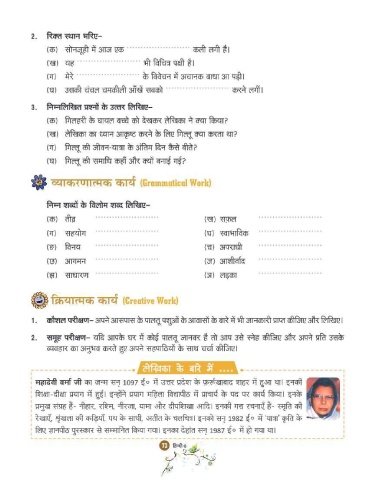 2. रिक्त स्थान भरिए–
(क) सोनजूही में आज एक ........................ कली लगी है।
(ख) यह ........................ भी विचित्र पक्षी है।
(ग) मेरे ........................ के विवेचन में अचानक बाधा आ पड़ी।
(घ) उसकी चंचल चमकीली आँखें सबको ........................ करने लगीं।
3. निम्नलिखित प्रश्नों के उत्तर लिखिए–
(क) गिलहरी के घायल बच्चे को देखकर लेखिका ने क्या किया?
(ख) लेखिका का ध्यान आकृष्ट करने के लिए गिल्लू क्या करता था?
(ग) गिल्लू की जीवन-यात्रा के अंतिम दिन कैसे बीते?
(घ) गिल्लू की समाधि कहाँ और क्यों बनाई गई?
व्याकरणात्मक कार्य (Grammatical Work)
निम्न शब्दों के विलोम शब्द लिखिए–
(क) तीव्र ........................ (ख) सफ़ल ........................
(ग) सहयोग ........................ (घ) स्वाभाविक ........................
(ङ) विनय ........................ (च) अपराधी ........................
(छ) आगमन ........................ (ज) आशीर्वाद ........................
(झ) साधारण ........................ (ञ) लड़का ........................
क्रियात्मक कार्य (Creative Work)
1. कौशल परीक्षण– अपने आसपास के पालतू पशुओं के आवासों के बारे में भी जानकारी प्राप्त कीजिए और लिखिए।
2. समूह परीक्षण– यदि आपके घर में कोई पालतू जानवर है तो आप उसे स्नेह कीजिए और अपने प्रति उसके
व्यवहार का अनुभव करते हुए अपने सहपाठियों के साथ चर्चा कीजिए।
लेखिका के बारे में ....
महादेवी वर्मा जी का जन्म सन् 1097 ई० में उत्तर प्रदेश के फ़र्रुखाबाद शहर में हुआ था। इनकी
शिक्षा-दीक्षा प्रयाग में हुई। इन्होंने प्रयाग महिला विद्यापीठ में प्राचार्य के पद पर कार्य किया। इनके
प्रमुख संग्रह हैं- नीहार, रश्मि, नीरजा, यामा और दीपशिखा आदि। इनकी गत्त रचनाएँ हैं- स्मृति की
रेखाएँ, श्रृंखला की कड़ियाँ, पथ के साथी, अतीत के चलचित्र। इनको सन् 1982 ई० में 'यात्रा' कृति के
लिए ज्ञानपीठ पुरस्कार से सम्मानित किया गया। इनका देहांत सन् 1987 ई० में हो गया था।
73 हिन्दी-6